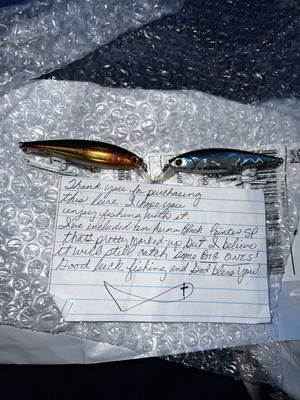 Thank you for purchasing
this lure. I hope you
enjoy fishing with it.
I've included
that's pretty marked-up but I believe
it will still catch some BIG ONES!
Good luck fishing and God bless you!